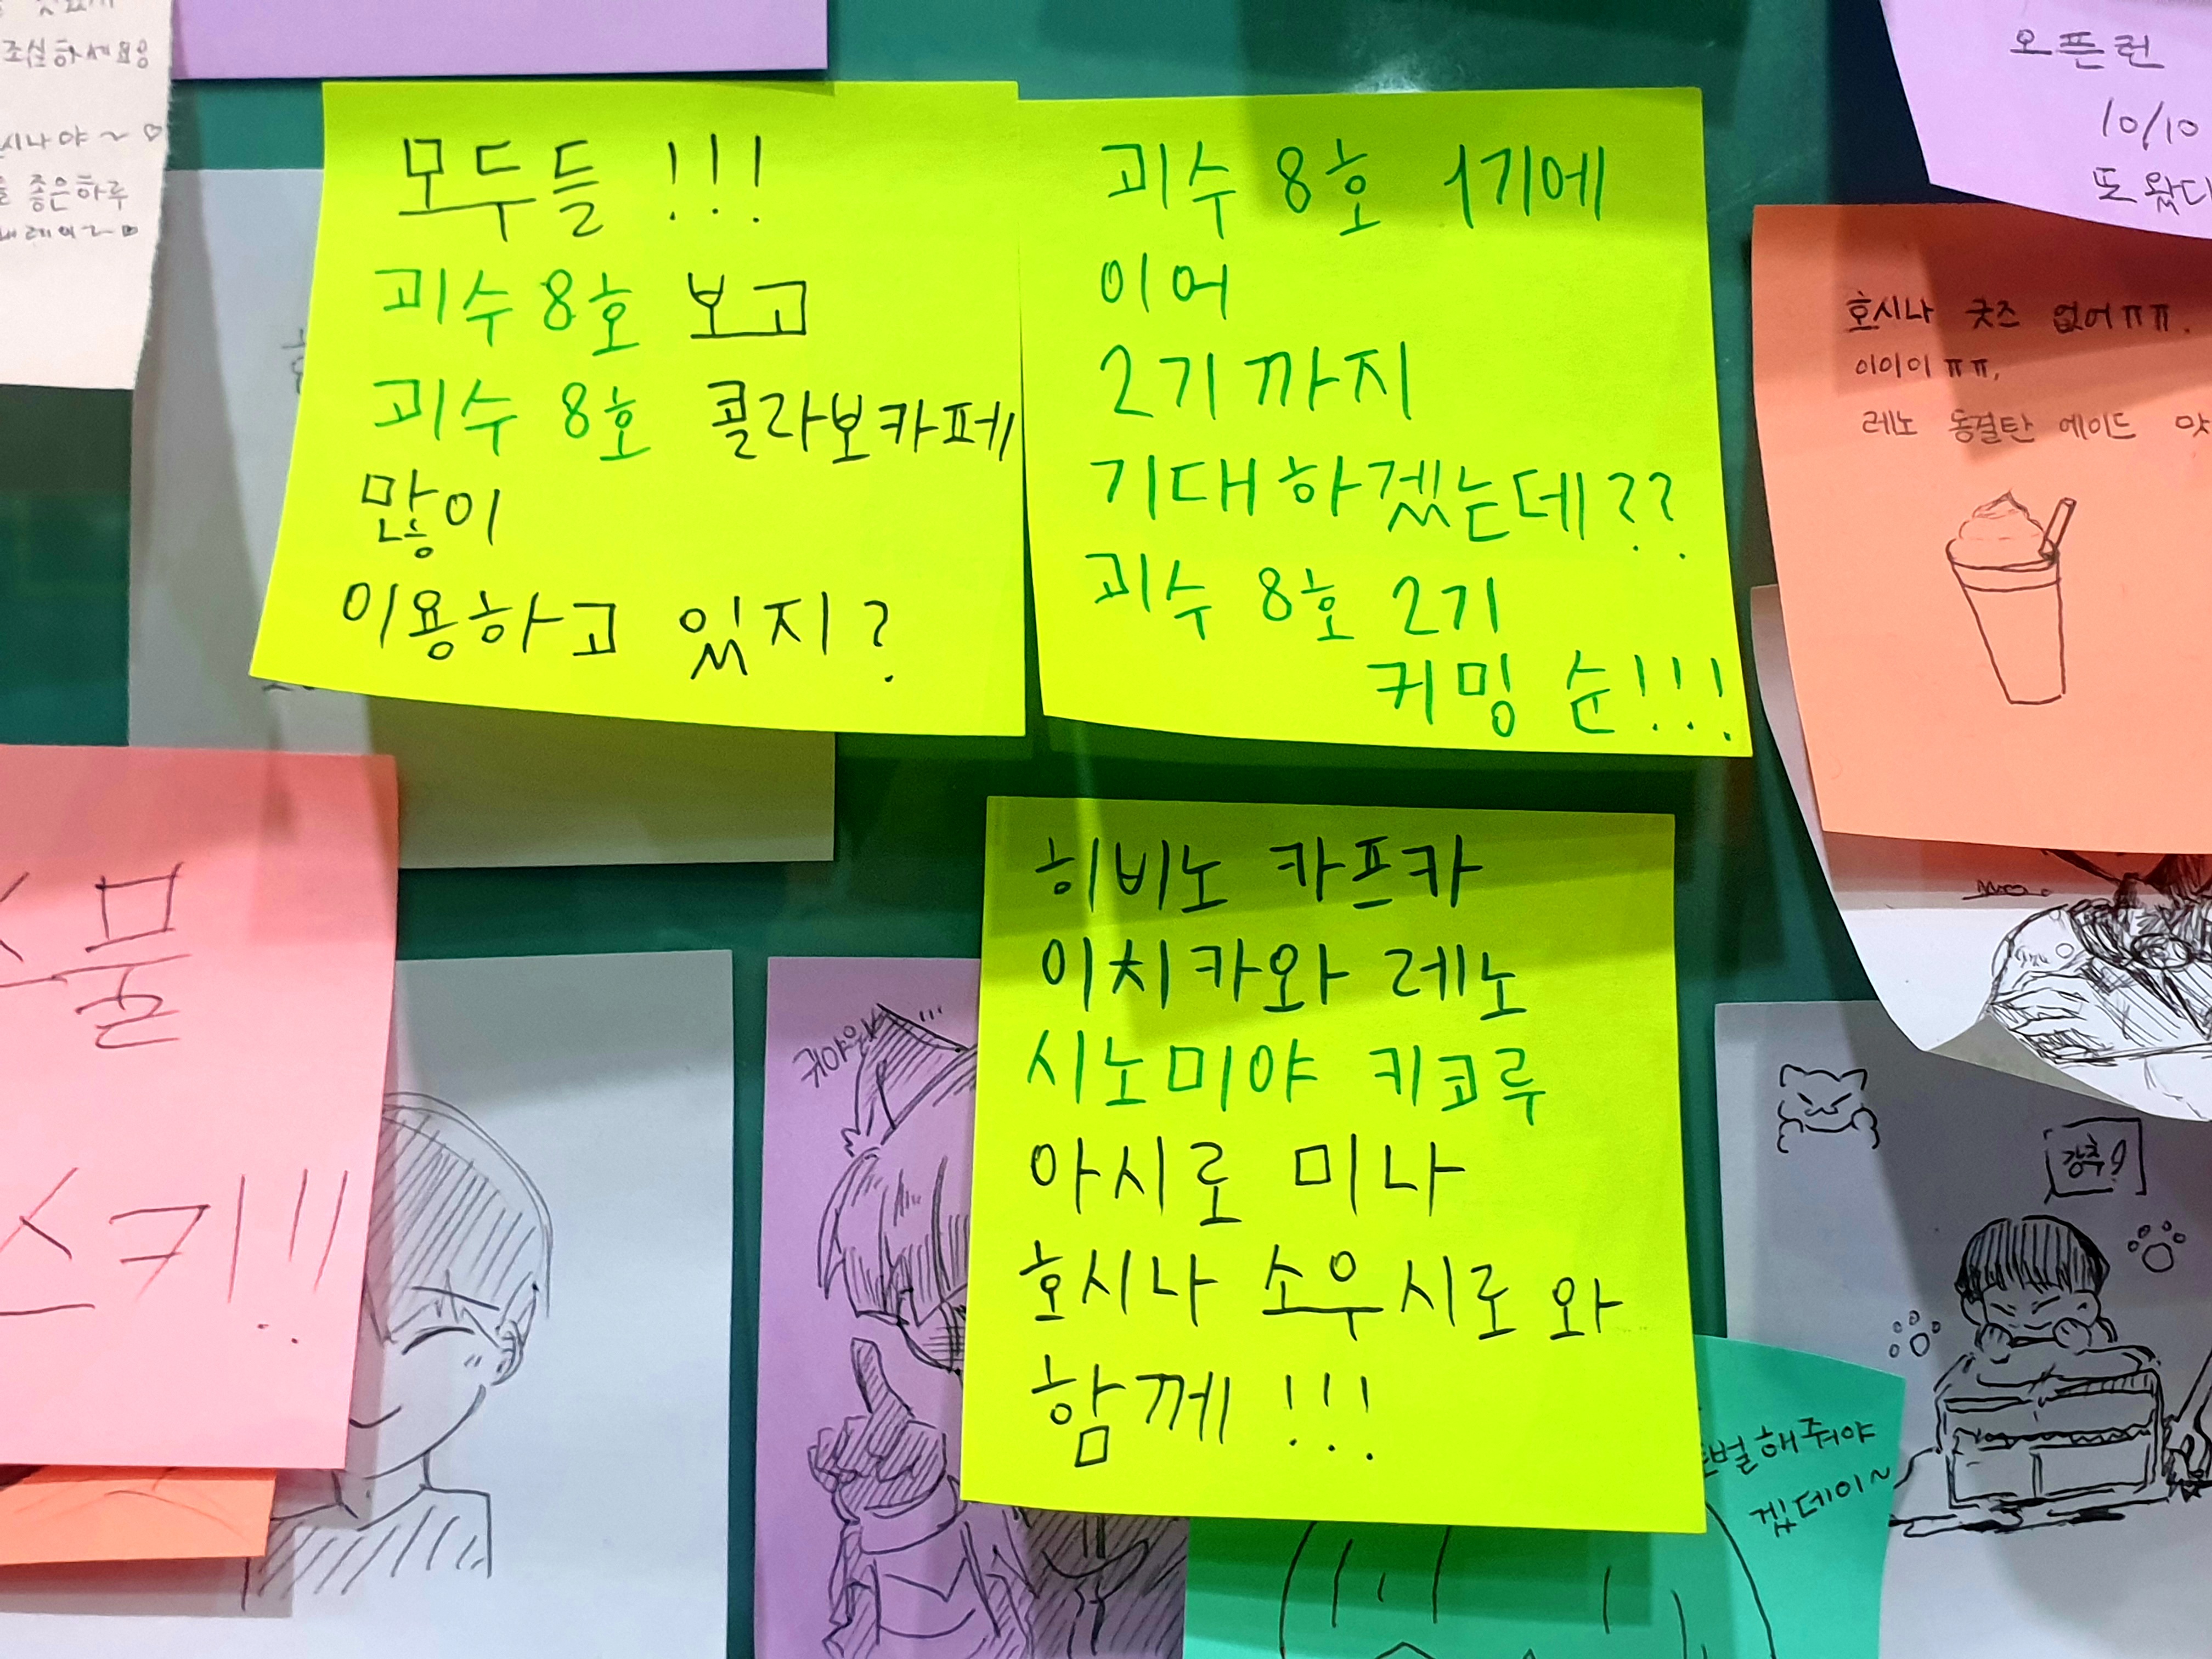 조심하세요용
시나야~♡
좋은하루
모두들!!!
괴수8호 보고
괴수 8호 콜라보카페
많이
이용하고 있지?
괴수 8호 1기에
이어
2기까지
기대하겠는데??
괴수 8호 2기
커밍 순!!!
오픈런
10/10
또 왔다
호시나 굿즈 없어ㅠㅠ.
이이이ㅠㅠ,
레노 동결탄 에이드 맛
히비노 카프카
이치카와 레노
시노미야 키코루
아시로 미나
호시나 소우시로 와
함께!!!
스물
스키!!
귀야와
강추!
벌해줘야
겠데이~